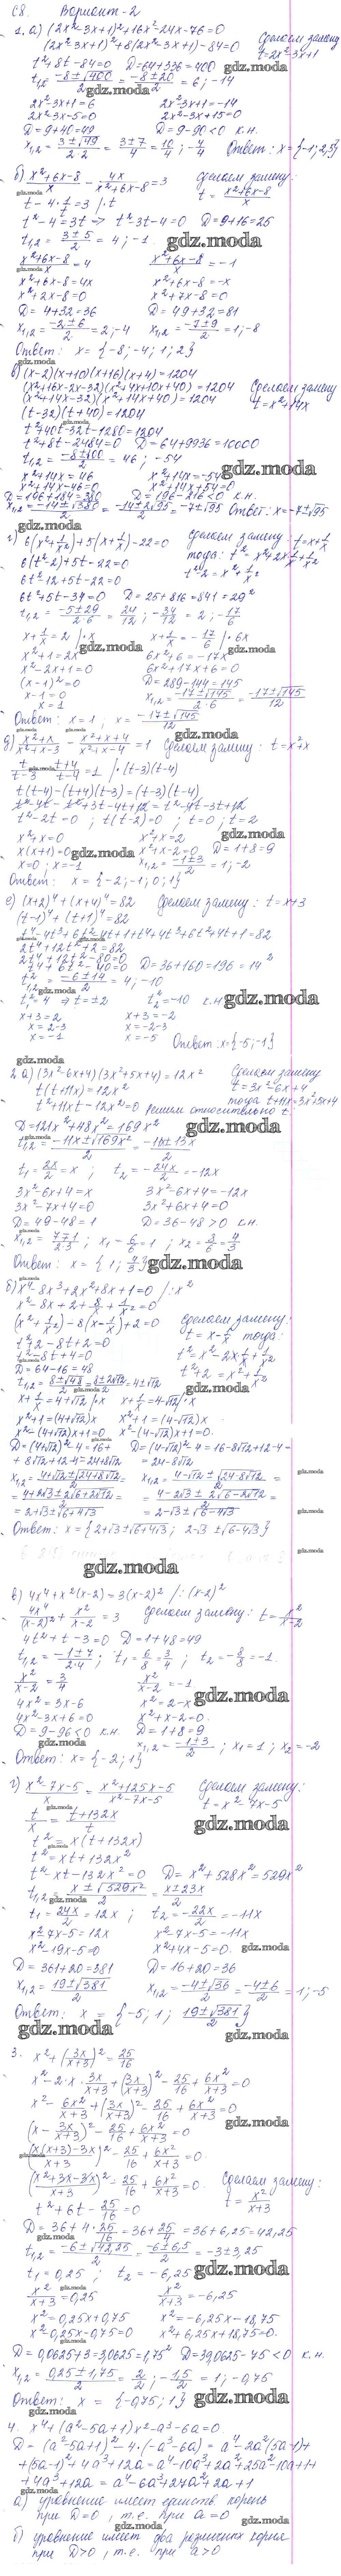 С8. Вариант-2
1. а) (2x²-3x+1)²+16x²-24x-76=0 Сделаем замену
(2x²-3x+1)²+8(2x²-3x+1)-84=0 t=2x²-3x+1
t²+8t-84=0 D=64+336=400
t₁,₂ = (-8±√400)/2 = (-8±20)/2 = 6; -14
2x²-3x+1=6 2x²-3x+1=-14
2x²-3x-5=0 2x²-3x+15=0
D=9+40=49 D=9-90<0 к.н.
x₁,₂ = (3±√49)/(2·2) = (3±7)/4 = 10/4; -4/4 Ответ: x={-1; 2,5}
б) (x²+6x-8)/x - 4x/(x²+6x-8) = 3 сделаем замену:
t - 4·1/t = 3 /·t t = (x²+6x-8)/x
t²-4=3t ⇒ t²-3t-4=0 D=9+16=25
t₁,₂ = (3±5)/2 = 4; -1
(x²+6x-8)/x = 4 (x²+6x-8)/x = -1
x²+6x-8=4x x²+6x-8=-x
x²+2x-8=0 x²+7x-8=0
D=4+32=36 D=49+32=81
x₁,₂ = (-2±6)/2 = 2; -4 x₁,₂ = (-7±9)/2 = 1; -8
Ответ: x={-8; -4; 1; 2}
в) (x-2)(x+10)(x+16)(x+4)=1204
(x²+16x-2x-32)(x²+4x+10x+40)=1204 Сделаем замену
(x²+14x-32)(x²+14x+40)=1204 t=x²+14x
(t-32)(t+40)=1204
t²+40t-32t-1280=1204
t²+8t-2484=0 D=64+9936=10000
t₁,₂ = (-8±100)/2 = 46; -54
x²+14x=46 x²+14x=-54
x²+14x-46=0 x²+14x+54=0
D=196+184=380 D=196-216<0 к.н.
x₁,₂ = (-14±√380)/2 = (-14±2√95)/2 = -7±√95 Ответ: x=-7±√95
г) 6(x²+1/x²)+5(x+1/x)-22=0 сделаем замену: t=x+1/x
6(t²-2)+5t-22=0 тогда: t²=x²+2x·1/x+1/x²
6t²-12+5t-22=0 t²-2=x²+1/x²
6t²+5t-34=0 D=25+816=841=29²
t₁,₂ = (-5±29)/(2·6) = 24/12; -34/12 = 2; -17/6
x+1/x=2 /·x x+1/x=-17/6 /·6x
x²+1=2x 6x²+6=-17x
x²-2x+1=0 6x²+17x+6=0
(x-1)²=0 D=289-144=145
x-1=0 x₁,₂ = (-17±√145)/(2·6) = (-17±√145)/12
x=1
Ответ: x=1; x=(-17±√145)/12
д) (x²+x)/(x²+x-3) - (x²+x+4)/(x²+x-4) = 1 Сделаем замену: t=x²+x
t/(t-3) - (t+4)/(t-4) = 1 /·(t-3)(t-4)
t(t-4)-(t+4)(t-3)=(t-3)(t-4)
t²-4t-t²+3t-4t+12=t²-4t-3t+12
t²-2t=0; t(t-2)=0; t=0; t=2
x²+x=0 x²+x=2
x(x+1)=0 x²+x-2=0 D=1+8=9
x=0; x=-1 x₁,₂ = (-1±3)/2 = 1; -2
Ответ: x={-2; -1; 0; 1}
е) (x+2)⁴+(x+4)⁴=82 Сделаем замену: t=x+3
(t-1)⁴+(t+1)⁴=82
t⁴-4t³+6t²-4t+1+t⁴+4t³+6t²+4t+1=82
2t⁴+12t²+2=82
2t⁴+12t²-80=0
t⁴+6t²-40=0 D=36+160=196=14²
t²₁,₂ = (-6±14)/2 = 4; -10
t²=4 ⇒ t=±2 t²=-10 к.н.
x+3=2 x+3=-2
x=2-3 x=-2-3
x=-1 x=-5 Ответ: x={-5; -1}
2. а) (3x²-6x+4)(3x²+5x+4)=12x² Сделаем замену
t(t+11x)=12x² t=3x²-6x+4
t²+11xt-12x²=0 решим относительно t. тогда t+11x=3x²+5x+4
D=121x²+48x²=169x²
t₁,₂ = (-11x±√169x²)/2 = (-11x±13x)/2
t₁ = 2x/2 = x; t₂ = -24x/2 = -12x
3x²-6x+4=x 3x²-6x+4=-12x
3x²-7x+4=0 3x²+6x+4=0
D=49-48=1 D=36-48>0 к.н.
x₁,₂ = (7±1)/(2·3); x₁=6/6=1; x₂=8/6=4/3
Ответ: x={1; 4/3}
б) x⁴-8x³+2x²+8x+1=0 /:x²
x²-8x+2+8/x+1/x²=0
(x²+1/x²)-8(x-1/x)+2=0 сделаем замену:
t²+2-8t+2=0 t=x-1/x тогда:
t²-8t+4=0 t²=x²-2x·1/x+1/x²
D=64-16=48 t²+2=x²+1/x²
t₁,₂ = (8±√48)/2 = (8±2√12)/2 = 4±√12
x+1/x=4+√12 /·x x+1/x=4-√12 /·x
x²+1=(4+√12)x x²+1=(4-√12)x
x²-(4+√12)x+1=0 x²-(4-√12)x+1=0.
D=(4+√12)²-4=16+ D=(4-√12)²-4=16-8√12+12-4=
+8√12+12-4=24+8√12 =24-8√12
x₁,₂ = (4+√12±√(24+8√12))/2 = x₁,₂ = (4-√12±√(24-8√12))/2 =
= (4+2√3±2√(6+2√12))/2 = = (4-2√3±2√(6-2√12))/2 =
= 2+√3±√(6+4√3) = 2-√3±√(6-4√3)
Ответ: x={2+√3±√(6+4√3); 2-√3±√(6-4√3)}
в) 4x⁴+x²(x-2)=3(x-2)² /:(x-2)²
4x⁴/(x-2)² + x²/(x-2) = 3 Сделаем замену: t=x²/(x-2)
4t²+t-3=0 D=1+48=49
t₁,₂ = (-1±7)/(2·4); t₁=6/8=3/4; t₂=-8/8=-1.
x²/(x-2)=3/4 x²/(x-2)=-1
4x²=3x-6 x²=2-x
4x²-3x+6=0 x²+x-2=0.
D=9-96<0 к.н. D=1+8=9
x₁,₂ = (-1±3)/2; x₁=1; x₂=-2
Ответ: x={-2; 1}
г) (x²-7x-5)/x = (x²+125x-5)/(x²-7x-5) Сделаем замену:
t/x = (t+132x)/t t=x²-7x-5
t²=x(t+132x)
t²=xt+132x²
t²-xt-132x²=0 D=x²+528x²=529x²
t₁,₂ = (x±√529x²)/2 = (x±23x)/2
t₁ = 24x/2 = 12x; t₂ = -22x/2 = -11x
x²-7x-5=12x x²-7x-5=-11x
x²-19x-5=0 x²+4x-5=0.
D=361+20=381 D=16+20=36
x₁,₂ = (19±√381)/2 x₁,₂ = (-4±√36)/2 = (-4±6)/2 = 1; -5
Ответ: x={-5; 1; (19±√381)/2}
3. x²+(3x/(x+3))²=25/16
x²-2·x·3x/(x+3)+(3x/(x+3))²-25/16+6x²/(x+3)=0
x²-6x²/(x+3)+(3x/(x+3))²-25/16+6x²/(x+3)=0
(x-3x/(x+3))²-25/16+6x²/(x+3)=0
((x(x+3)-3x)/(x+3))²-25/16+6x²/(x+3)=0.
((x²+3x-3x)/(x+3))²-25/16+6x²/(x+3)=0. Сделаем замену:
t²+6t-25/16=0 t=x²/(x+3)
D=36+4·25/16=36+25/4=36+6,25=42,25
t₁,₂ = (-6±√42,25)/2 = (-6±6,5)/2 = -3±3,25
t₁=0,25; t₂=-6,25
x²/(x+3)=0,25 x²/(x+3)=-6,25
x²=0,25x+0,75 x²=-6,25x-18,75
x²-0,25x-0,75=0 x²+6,25x+18,75=0.
D=0,0625+3=3,0625=1,75² D=39,0625-75<0 к.н.
x₁,₂ = (0,25±1,75)/2 = 2/2; -1,5/2 = 1; -0,75
Ответ: x={-0,75; 1}
4. x⁴+(a²-5a+1)x²-a³-6a=0.
D=(a²-5a+1)²-4·(-a³-6a)=a⁴-2a²(5a-1)+
+(5a-1)²+4a³+12a=a⁴-10a³+2a²+25a²-10a+1+
+4a³+12a=a⁴-6a³+27a²+2a+1
а) уравнение имеет единств. корень
при D=0, т.е. при a=0
б) уравнение имеет два различных корня
при D>0, т.е. при a>0
gdz.moda